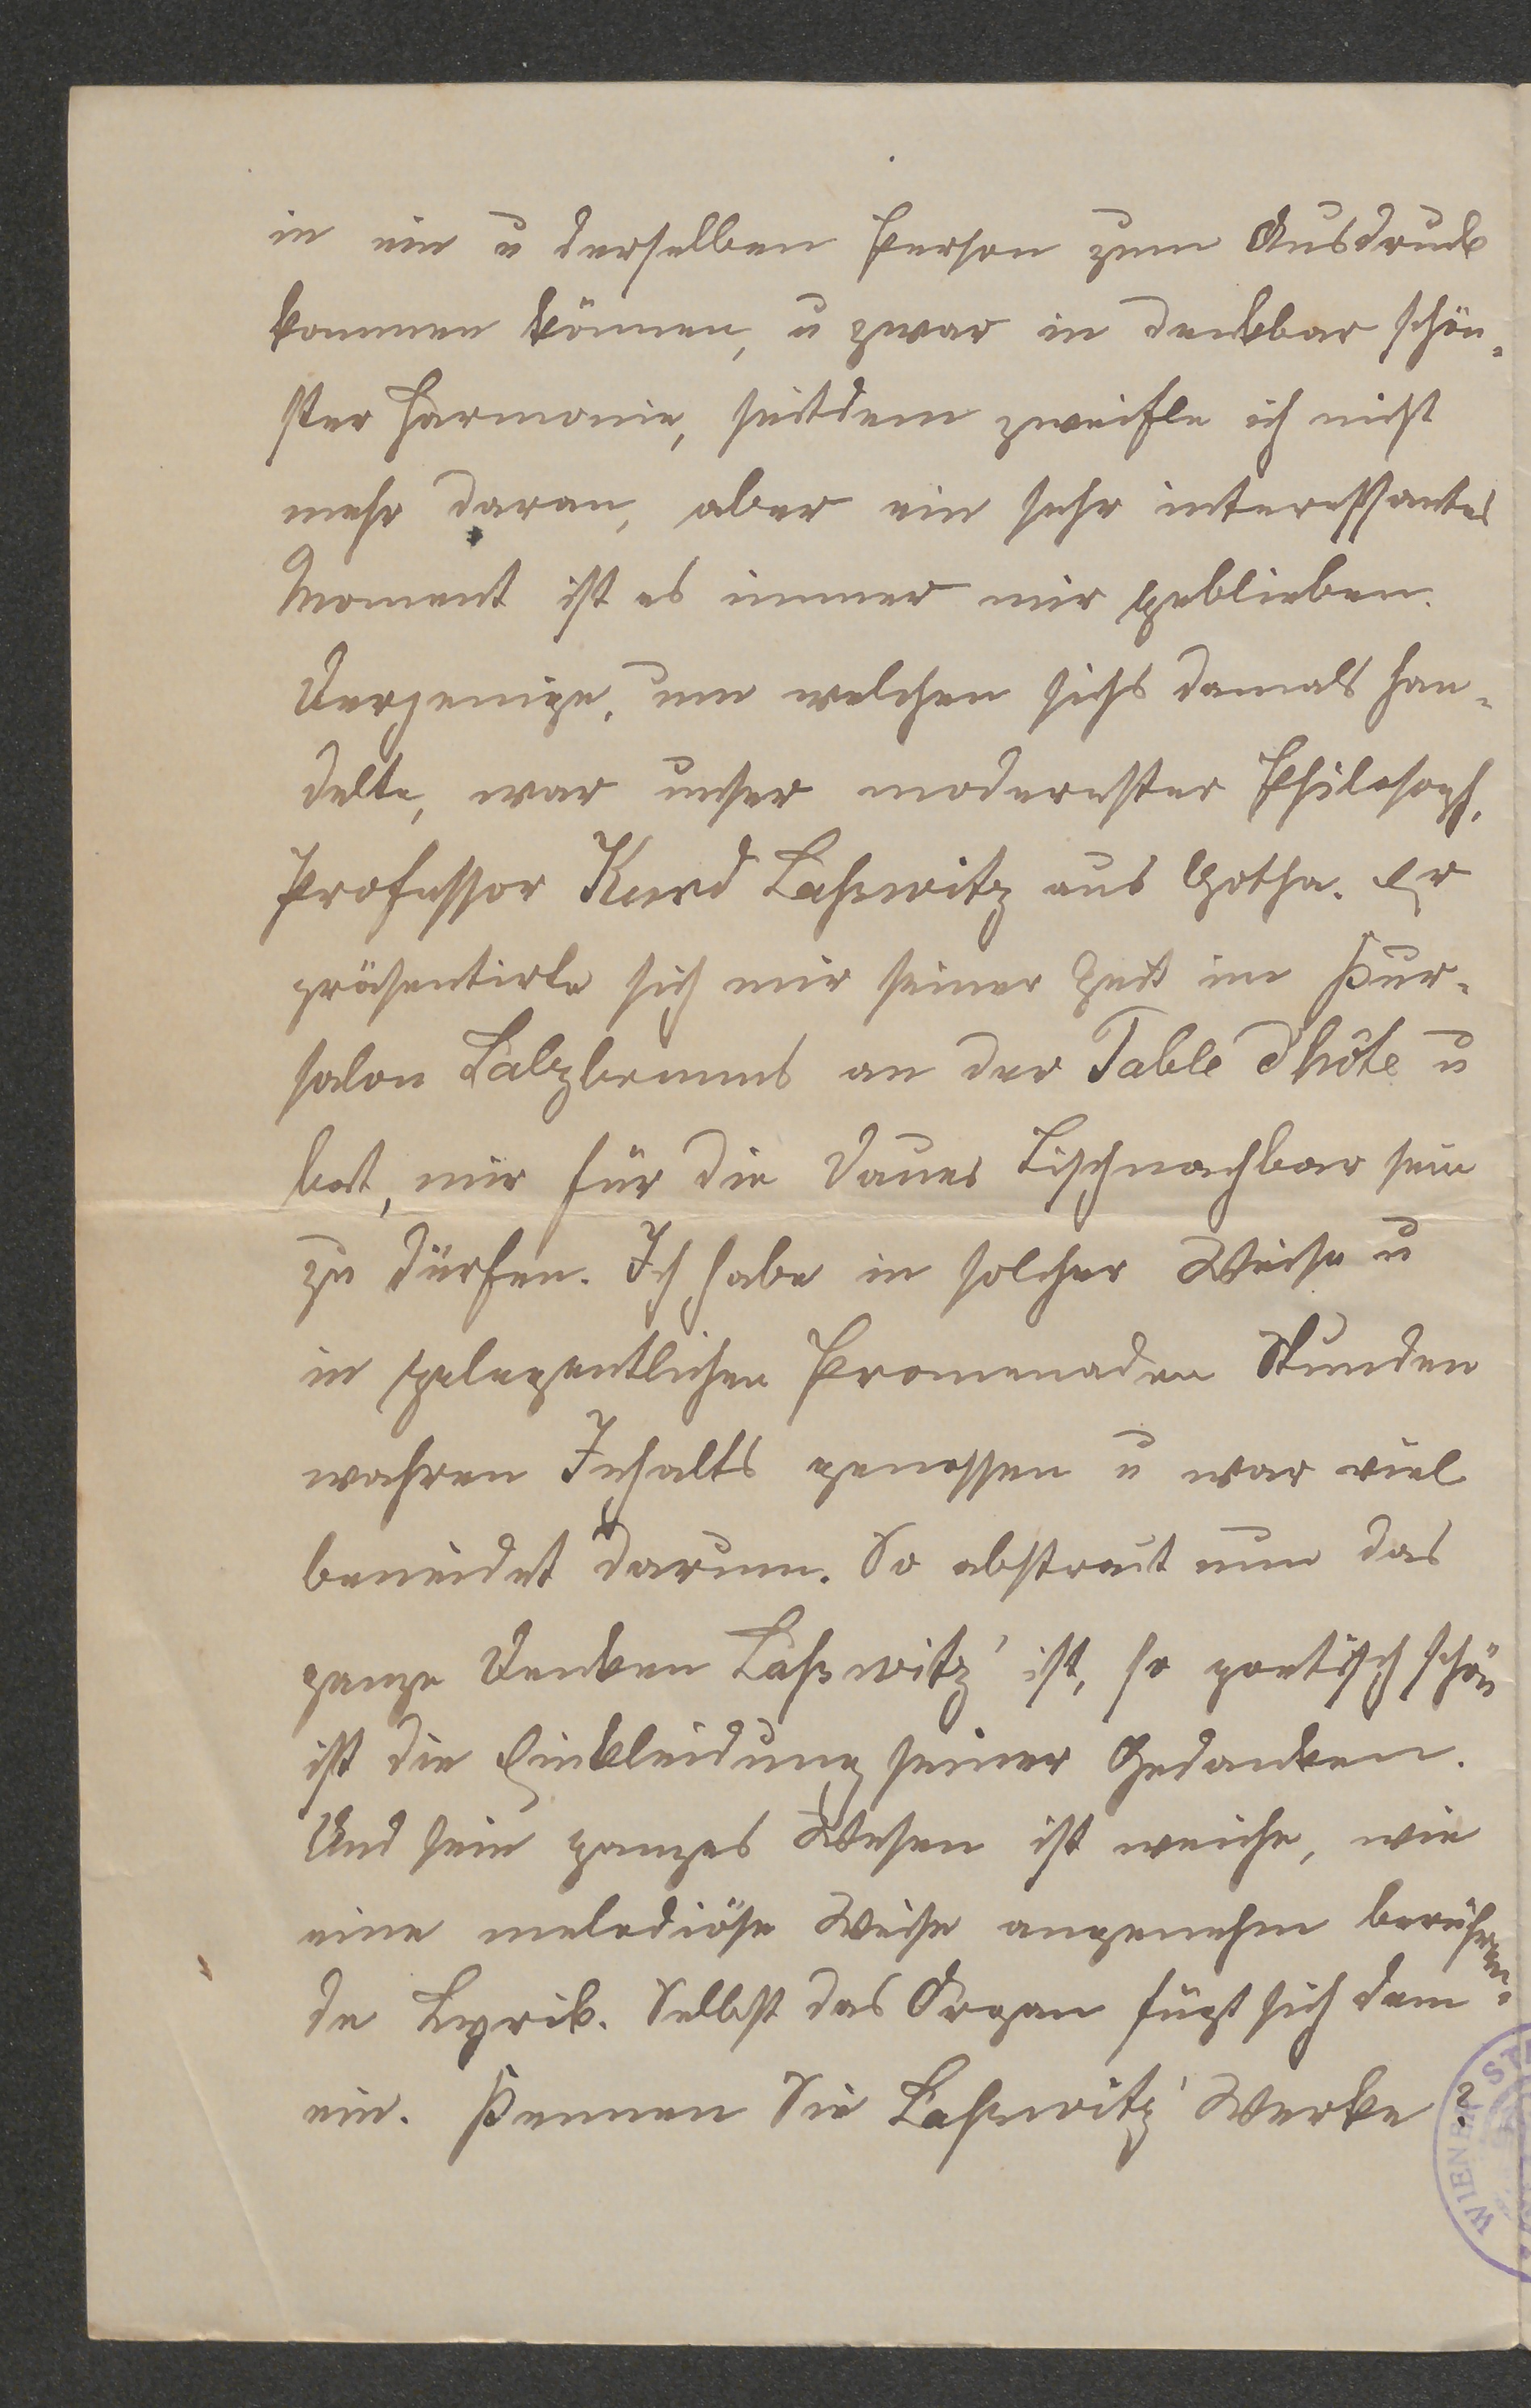 in ein u derselben Person zum Ausdruck
kommen können, u zwar in denkbar schön-
ster Harmonie, seitdem zweifle ich nicht
mehr daran, aber ein sehr interessantes
Moment ist es immer mir geblieben.
Derjenige, um welchen sichs damals han-
delte, war unser modernster Philosoph,
Professor Kurd Laßwitz aus Gotha. Er
präsentirte sich mir seiner Zeit im Kur-
salon Salzbrunns an der Table d'hôte u
bat, mir für die Dauer Tischnachbar sein
zu dürfen. Ich habe in solcher Weise u
in gelegentlichen Promenaden Stunden
wahren Inhalts genossen u war viel
beneidet darum. So abstract nun das
ganze Denken Laßwitz' ist, so poetisch schön
ist die Einkleidung seiner Gedanken.
Und sein ganzes Wesen ist weiche, wie
eine melodiöse Weise angenehm berühren-
de Lyrik. Selbst das Organ fügt sich dem
ein. Kennen Sie Laßwitz' Werke?
WIENER ST